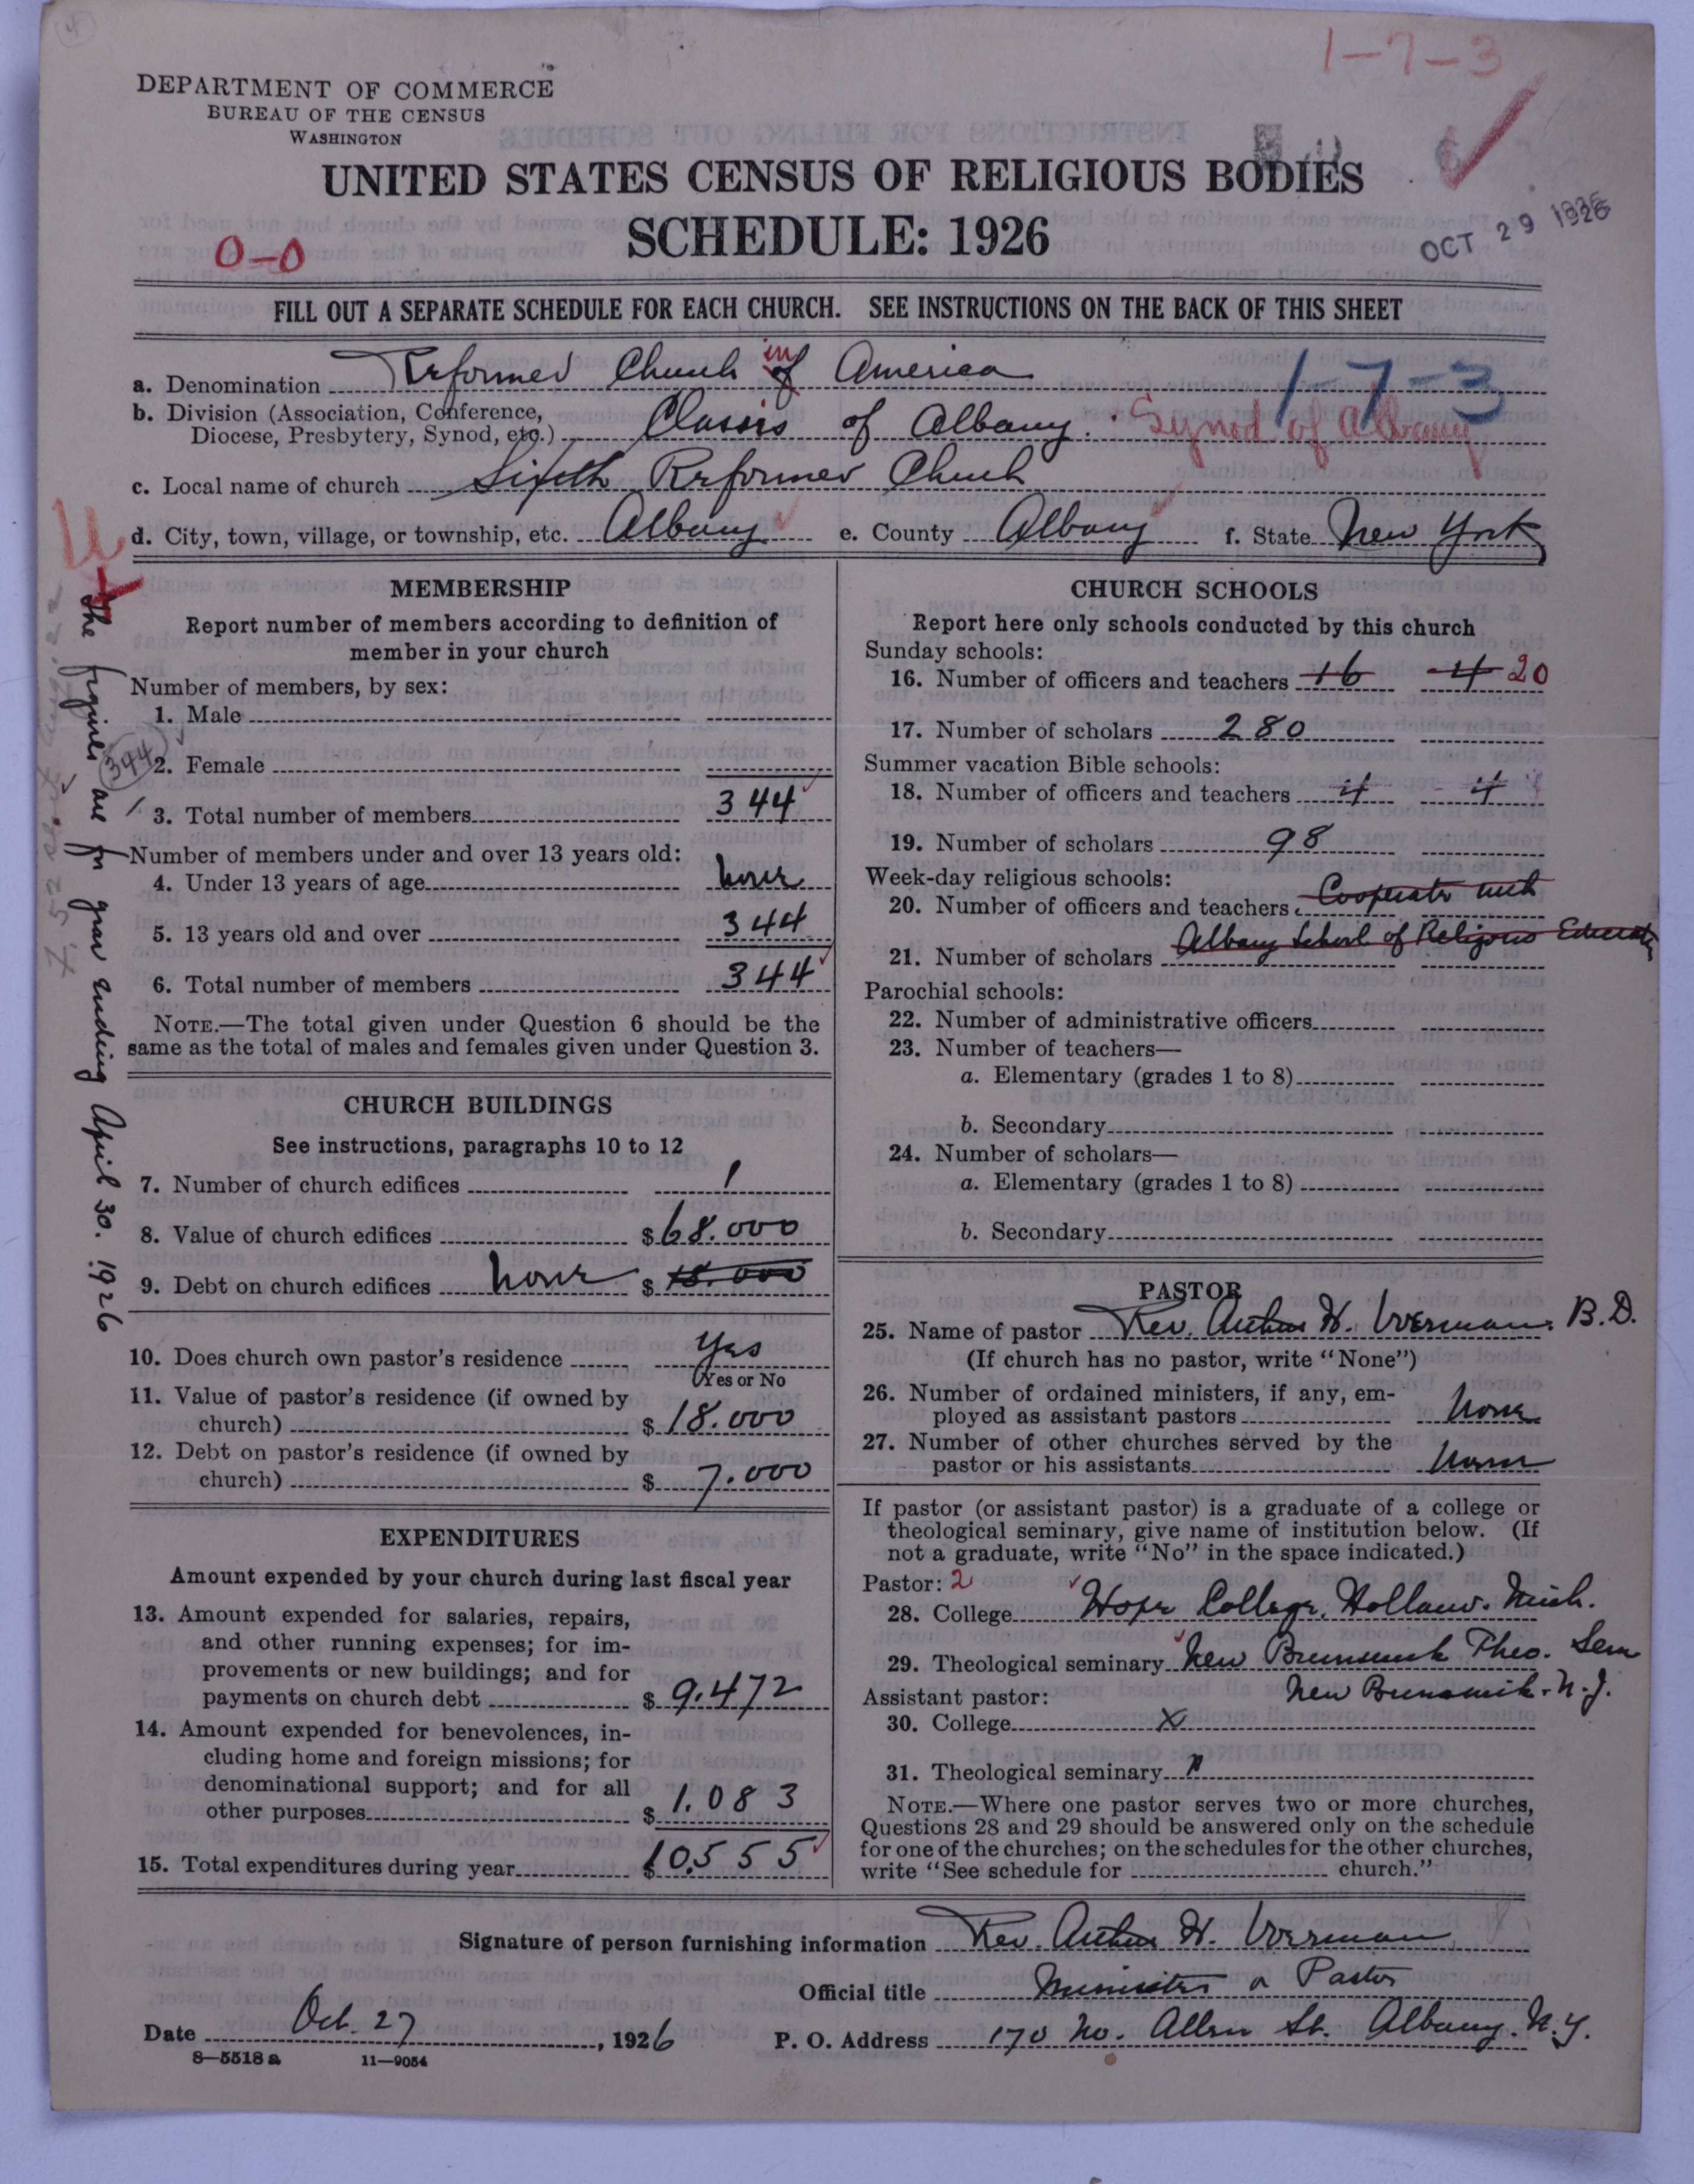 1-7-3
DEPARTMENT OF COMMERCE
BUREAU OF THE CENSUS
WASHINGTON
UNITED STATES CENSUS OF RELIGIOUS BODIES
SCHEDULE: 1926
OCT 29 1926
0-0
FILL OUT A SEPARATE SCHEDULE FOR EACH CHURCH. SEE INSTRUCTIONS ON THE BACK OF THIS SHEET
a. Denomination Reformed Church of in America 1-7-3
b. Division (Association, Conference, Diocese, Presbytery, Synod, etc.) Classis of Albany. Synod of Albany
c. Local name of church Sixth Reformed Church
d. City, town, village, or township, etc. Albany e. County Albany f. State New York
The figures are for year ending April 30. 1926
MEMBERSHIP
Report number of members according to definition of
member in your church
Number of members, by sex:
1. Male
2. Female
344
3. Total number of members 344
Number of members under and over 13 years old:
4. Under 13 years of age none
5. 13 years old and over 344
6. Total number of members 344
NOTE.—The total given under Question 6 should be the
same as the total of males and females given under Question 3.
CHURCH BUILDINGS
See instructions, paragraphs 10 to 12
7. Number of church edifices 1
8. Value of church edifices $68.000
9. Debt on church edifices none $ 18.000
10. Does church own pastor's residence Yes
Yes or No
11. Value of pastor's residence (if owned by
church) $18.000
12. Debt on pastor's residence (if owned by
church) $ 7.000
EXPENDITURES
Amount expended by your church during last fiscal year
13. Amount expended for salaries, repairs,
and other running expenses; for im-
provements or new buildings; and for
payments on church debt $ 9.472
14. Amount expended for benevolences, in-
cluding home and foreign missions; for
denominational support; and for all
other purposes $ 1.083
15. Total expenditures during year $ 10.555
CHURCH SCHOOLS
Report here only schools conducted by this church
Sunday schools:
16. Number of officers and teachers 16 4 20
17. Number of scholars 280
Summer vacation Bible schools:
18. Number of officers and teachers 4 4
19. Number of scholars 98
Week-day religious schools:
20. Number of officers and teachers Cooperate with
21. Number of scholars Albany School of Religious Education
Parochial schools:
22. Number of administrative officers
23. Number of teachers—
a. Elementary (grades 1 to 8)
b. Secondary
24. Number of scholars—
a. Elementary (grades 1 to 8)
b. Secondary
PASTOR
25. Name of pastor Rev. Arthur H. Voerman. B.D.
(If church has no pastor, write "None")
26. Number of ordained ministers, if any, em-
ployed as assistant pastors None
27. Number of other churches served by the
pastor or his assistants None
If pastor (or assistant pastor) is a graduate of a college or
theological seminary, give name of institution below. (If
not a graduate, write "No" in the space indicated.)
Pastor: 2
28. College Hope College, Holland. Mich.
29. Theological seminary New Brunswick Theo. Sem
New Brunswick. N.J.
Assistant pastor:
30. College x
31. Theological seminary
NOTE.—Where one pastor serves two or more churches,
Questions 28 and 29 should be answered only on the schedule
for one of the churches; on the schedules for the other churches,
write "See schedule for church."
Signature of person furnishing information Rev. Arthur H. Voerman
Official title Minister or Pastor
Date Oct. 27, 1926 P. O. Address 170 No. Allen St. Albany. N.Y.
8—5518 a 11—9054